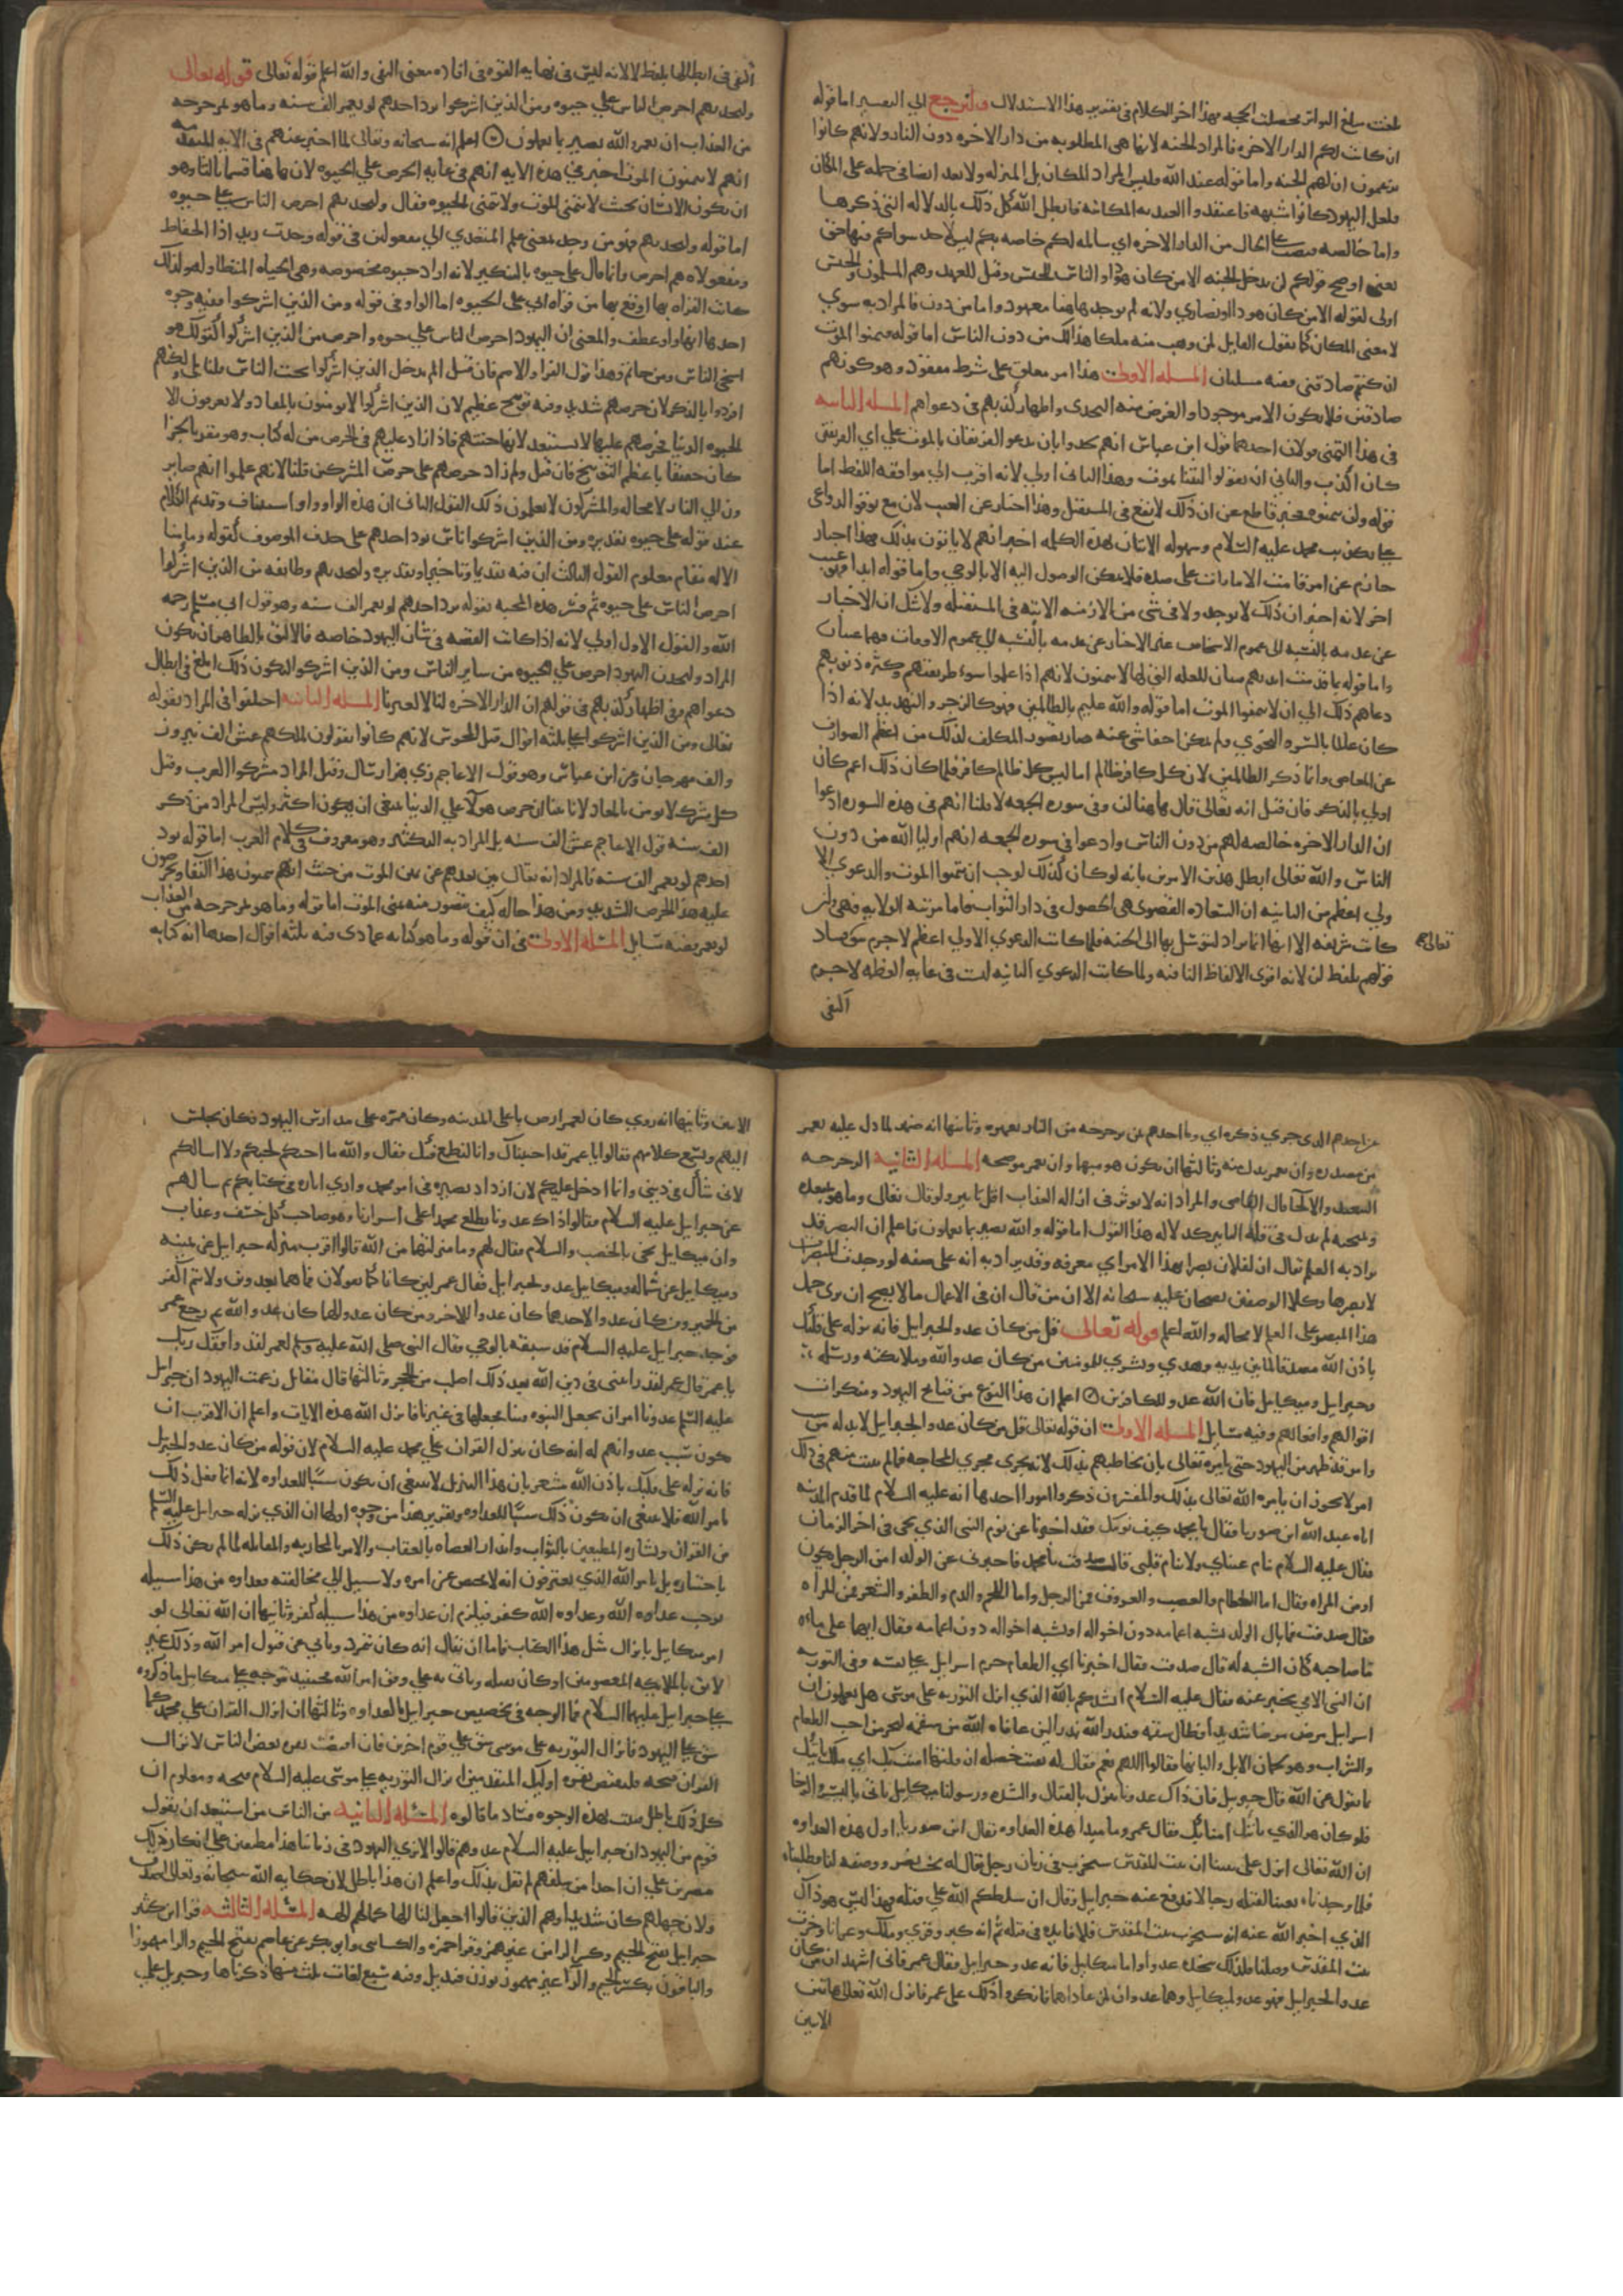 بلغت مبلغ التواتر حصلت الحجه بهذا اخر الكلام فى تقرير هذا الاستدلال ولنرجع الى التفسير اما قوله
ان كانت لكم الدار الاخره فالمراد الجنه لانها هى المطلوبه من دار الاخره دون النار ولانهم كانوا
يزعمون ان لهم الجنه واما قوله عند الله فليس المراد المكان بل المنزله ولا بعد ايضا فى حمله على المكان
فلعل اليهود كانوا مشبهه فاعتقدوا العنديه المكانيه فابطل الله كل ذلك بالدلاله التى ذكرها
واما خالصه فنصب على الحال من الدار الاخره اى سالمه لكم خاصه بكم ليس لاحد سواكم فيها حق
يعنى ان صح قولكم لن يدخل الجنه الا من كان هودا او الناس للجنس وقيل للعهد وهم المسلمون والجنس
اولى لقوله الا من كان هودا او نصارى ولانه لم يوجد هاهنا معهود واما من دون فالمراد به سوى
لا معنى المكان كما يقول القايل لمن وهب منه ملكا هذا لك من دون الناس اما قوله فتمنوا الموت
ان كنتم صادقين ففيه مسلتان المسله الاولى هذا امر معلق على شرط مفقود وهو كونهم
صادقين فلا يكون الامر موجودا والغرض منه التحدى واظهار كذبهم فى دعواهم المسله الثانيه
فى هذا التمنى قولان احدهما قول ابن عباس انهم تحدوا بان يدعو الفريقان بالموت على اى الفريقين
كان اكذب والثانى ان يقولوا ليتنا نموت وهذا الثانى اولى لانه اقرب الى موافقه اللفظ اما
قوله ولن يتمنوه فخبر قاطع عن ان ذلك لا يقع فى المستقبل وهذا اخبار عن الغيب لان مع توفر الدواعى
على تكذيب محمد عليه السلام وسهوله الاتيان بهذه الكلمه اخبر انهم لا ياتون بذلك فهذا اخبار
جازم عن امر قامت الامارات على ضده فلا يمكن الوصول اليه الا بالوحى واما قوله ابدا فهو غيب
اخر لانه اخبر ان ذلك لا يوجد ولا فى شى من الازمنه الاتيه فى المستقبله ولا شك ان الاخبار
عن عدمه بالنسبه الى عموم الاشخاص غير الاخبار عن عدمه بالنسبه الى عموم الاوقات فهما غيبان
واما قوله بما قدمت ايديهم فبيان للعله التى لها لا يتمنون لانهم اذا علموا سوء طريقتهم وكثره ذنوبهم
دعاهم ذلك الى ان لا يتمنوا الموت اما قوله والله عليم بالظالمين فهو كالزجر والتهديد لانه اذا
كان عالما بالسر والنجوى ولم يمكن اخفا شى عنه صار تصور المكلف لذلك من اعظم الصوارف
عن المعاصى وانما ذكر الظالمين لان كل كافر ظالم اما ليس كل ظالم كافر فلما كان ذلك اعم كان
اولى بالذكر فان قيل انه تعالى قال هاهنا لن وفى سوره الجمعه لا قلنا انهم فى هذه السوره ادعوا
ان الدار الاخره خالصه لهم من دون الناس وادعوا فى سوره الجمعه انهم اوليا الله من دون
الناس والله تعالى ابطل هذين الامرين بانه لو كان كذلك لوجب ان يتمنوا الموت والدعوى الا
ولى اعظم من الثانيه ان السعاده القصوى هى الحصول فى دار الثواب فاما مرتبه الولايه فهى وان
كانت شريفه الا انها انما يراد ليتوسل بها الى الجنه فلما كانت الدعوى الاولى اعظم لا جرم بين فساد
تعالى
قولهم بلفظ لن لانه اقوى الالفاظ النافيه ولما كانت الدعوى الثانيه ليست فى غايه العظمه لا جرم
اكتفى
اكتفى فى ابطالها بلفظ لا لانه ليس فى نهايه القوه فى افاده معنى النفى والله اعلم قوله تعالى قوله تعالى
ولتجدنهم احرص الناس على حيوه ومن الذين اشركوا يود احدهم لو يعمر الف سنه وما هو بمزحزحه
من العذاب ان يعمر والله بصير بما يعملون اعلم انه سبحانه وتعالى لما اخبر عنهم فى الايه المتقدمه
انهم لا يتمنون الموت اخبر فى هذه الايه انهم فى غايه الحرص على الحيوه لان هاهنا قسما ثالثا وهو
ان يكون الانسان بحيث لا يتمنى الموت ولا يتمنى الحيوه فقال ولتجدنهم احرص الناس على حيوه
اما قوله ولتجدنهم فهو من وجد بمعنى علم المتعدى الى مفعولين فى قوله وجدت زيد اذا الحفاظ
ومفعولاه هم احرص وانما قال على حيوه بالتنكير لانه اراد حيوه مخصوصه وهى الحياه المتطاوله ولذلك
كانت القراه بها اوقع بها من قراه ابى على الحيوه اما الواو فى قوله ومن الذين اشركوا ففيه وجوه
احدها انها واو عطف والمعنى ان اليهود احرص الناس على حيوه واحرص من الذين اشركوا كقولك هو
اسخى الناس ومن حاتم وهذا قول الفرا والاصم فان قيل الم يدخل الذين اشركوا تحت الناس قلنا بلى ولكنهم
افردوا بالذكر لان حرصهم شديد وفيه توبيخ عظيم لان الذين اشركوا لا يومنون بالمعاد ولا يعرفون الا
الحيوه الدنيا فحرصهم عليها لا يستبعد لانها جنتهم فاذا زاد عليهم فى الحرص من له كتاب وهو مقر بالجزا
كان حقيقا باعظم التوبيخ فان قيل ولم زاد حرصهم على حرص المشركين قلنا لانهم علموا انهم صاير
ون الى النار لا محاله والمشركون لا يعلمون ذلك القول الثانى ان هذه الواو واو استيناف وقد تم الكلام
عند قوله على حيوه تقديره ومن الذين اشركوا اناس يود احدهم على حذف الموصوف كقوله وما منا
الا له مقام معلوم القول الثالث ان فيه تقديما وتاخيرا وتقديره ولتجدنهم وطايفه من الذين اشركوا
احرص الناس على حيوه ثم فسر هذه المحبه بقوله يود احدهم لو يعمر الف سنه وهو قول ابى مسلم رحمه
الله والقول الاول اولى لانه اذا كانت القصه فى شان اليهود خاصه فالاليق بالظاهر ان يكون
المراد ولتجدن اليهود احرص على الحيوه من ساير الناس ومن الذين اشركوا ليكون ذلك ابلغ فى ابطال
دعواهم وفى اظهار كذبهم فى قولهم ان الدار الاخره لنا لا لغيرنا المسله الثانيه اختلفوا فى المراد بقوله
تعالى ومن الذين اشركوا على ثلثه اقوال قيل المجوس لانهم كانوا يقولون لملكهم عش الف نيروز
والف مهرجان وعن ابن عباس وهو قول الاعاجم زى هزار سال وقيل المراد مشركوا العرب وقيل
كل مشرك لا يومن بالمعاد لانا بينا ان حرص هولا على الدنيا ينبغى ان يكون اكثر وليس المراد من ذكر
الف سنه قول الاعاجم عش الف سنه بل المراد به التكثير وهو معروف فى كلام العرب اما قوله يود
احدهم لو يعمر الف سنه فالمراد انه تعالى بين بعدهم عن تمنى الموت من حيث انهم يتمنون هذا البقا ويحرصون
عليه هذا الحرص الشديد ومن هذا حاله كيف يتصور منه تمنى الموت اما قوله وما هو بمزحزحه من العذاب
لو يعمر ففيه مسايل المسله الاولى فى ان قوله وما هو كنايه عما ذى فيه ثلثه اقوال احدها انه كنايه
عن احدهم الذى جرى ذكره اى وما احدهم بمن يزحزحه من النار تعميره وثانيها انه ضمير لما دل عليه يعمر
من مصدره وان يعمر بدل منه وثالثها ان يكون هو مبهما وان يعمر موضحه المسله الثانيه الزحزحه
التبعيد والانحا قال القاضى والمراد انه لا يوثر فى ازاله العذاب اقل تاثير ولو قال تعالى وما هو بمبعده
وبمنجيه لم يدل فى قله التاثير كدلاله هذا القول اما قوله والله بصير بما يعملون فاعلم ان البصر قد
يراد به العلم يقال ان لفلان بصرا بهذا الامر اى معرفه وقد يراد به انه على صفه لو وجدت المبصرات
لابصرها وكلا الوصفين يصحان عليه سبحانه الا ان من قال ان فى الاعمال ما لا يصح ان يرى حمل
هذا البصر على العلم لا محاله والله اعلم قوله تعالى قل من كان عدوا لجبرايل فانه نزله على قلبك
باذن الله مصدقا لما بين يديه وهدى وبشرى للمومنين من كان عدوا لله وملايكته ورسله
وجبرايل وميكايل فان الله عدو للكافرين اعلم ان هذا النوع من قبايح اليهود ومنكرات
اقوالهم وافعالهم وفيه مسايل المسله الاولى ان قوله تعالى قل من كان عدوا لجبرايل لا بد له من سبب
وامر قد ظهر من اليهود حتى يامره تعالى بان يخاطبهم بذلك لانه يجرى مجرى المحاجه فاذا لم يثبت منهم فى ذلك
امر لا يجوز ان يامره الله تعالى بذلك والمفسرون ذكروا امورا احدها انه عليه السلام لما قدم المدينه
اتاه عبد الله ابن صوريا فقال يا محمد كيف نومك فقد اخبرنا عن نوم النبى الذى يجى فى اخر الزمان
فقال عليه السلام تنام عيناى ولا ينام قلبى قال صدقت يا محمد فاخبرنى عن الولد امن الرجل يكون
او من المراه فقال اما العظام والعصب والعروف فمن الرجل واما اللحم والدم والظفر والشعر فمن المراه
فقال صدقت فما بال الولد يشبه اعمامه دون اخواله او يشبه اخواله دون اعمامه فقال ايهما علا ماءه
ما صاحبه كان الشبه له قال صدقت فقال اخبرنا اى الطعام حرم اسرايل على نفسه وفى التوريه
ان النبى الامى يخبر عنه فقال عليه السلام انشدكم بالله الذى انزل التوريه على موسى هل تعلمون ان
اسرايل مرض مرضا شديدا فطال سقمه فنذر لله نذرا لين عافاه الله من سقمه ليحرمن احب الطعام
والشراب وهو لحمان الابل والبانها فقالوا اللهم نعم فقال له بقيت خصله ان قلتها امنت بك اى ملك ياتيك
بما تقول عن الله قال جبريل قال ذاك عدونا ينزل بالقتال والشده ورسولنا ميكايل ياتى بالبشر والرخا
فلو كان هو الذى ياتيك امنا بك فقال عمر وما مبدا هذه العداوه فقال ابن صوريا اول هذه العداوه
ان الله تعالى انزل على نبينا ان بيت المقدس سيخرب فى زمان رجل يقال له بخت نصر ووصفه لنا فطلبناه
فلما وجدناه بعثنا لقتله رجالا فدفع عنه جبرايل وقال ان سلطكم الله على قتله فهذا ليس هو ذاك
الذى اخبر الله عنه انه سيخرب بيت المقدس فلا فايده فى قتله ثم انه كبر وقوى وملك وغزانا وخرب
بيت المقدس وقتلنا فلذلك نتخذه عدوا واما ميكايل فانه عدو جبرايل فقال عمر فانى اشهد ان من كان
عدوا لجبرايل فهو عدو لميكايل وهما عدوان لمن عاداهما فانكروا ذلك على عمر فانزل الله تعالى هاتين
الايتين
الايتين وثانيها انه روى كان لعمر ارض باعلى المدينه وكان ممره على مدارس اليهود فكان يجلس
اليهم ويسمع كلامهم فقالوا يا عمر قد احببناك وانا لنطمع فيك فقال والله ما احبكم لحبكم ولا اسالكم
لانى شاك فى دينى وانما ادخل عليكم لان ازداد بصيره فى امر محمد وارى اثاره فى كتابكم ثم سالهم
عن جبرايل عليه السلام فقالوا ذاك عدونا يطلع محمدا على اسرارنا وهو صاحب كل خسف وعذاب
وان ميكايل يجى بالخصب والسلام فقال لهم وما منزلتهما من الله قالوا اقرب منزله جبرايل عن يمينه
وميكايل عن شماله وميكايل عدو لجبرايل فقال عمر لين كانا كما تقولان فما هما بعدوين ولانتم اكفر
من الحمير ومن كان عدوا لاحدهما كان عدوا للاخر ومن كان عدوا لهما كان عدو الله ثم رجع عمر
فوجد جبرايل عليه السلام قد سبقه بالوحى فقال النبى صلى الله عليه وسلم لعمر لقد وافقك ربك
يا عمر قال عمر لقد رايتنى فى دين الله بعد ذلك اصلب من الحجر وثالثها قال مقاتل زعمت اليهود ان جبرايل
عليه السلم عدونا امر ان يجعل النبوه فينا فجعلها فى غيرنا فانزل الله هذه الايات واعلم ان الاقرب ان
يكون سبب عداوتهم له انه كان ينزل القران على محمد عليه السلام لان قوله من كان عدوا لجبريل
فانه نزله على قلبك باذن الله مشعر بان هذا التنزيل لا ينبغى ان يكون سببا للعداوه لانه انما يفعل ذلك
بامر الله فلا ينبغى ان يكون ذلك سببا للعداوه وتقرير هذا من وجوه اولها ان الذى نزله جبرايل عليه السلم
من القران وبشاره المطيعين بالثواب وانذار العصاه بالعقاب والامر بالمحاربه والمقاتله لما لم يكن ذلك
باختياره بل بامر الله الذى يعترفون انه لا محيص عن امره ولا سبيل الى مخالفته فعداوه من هذا سبيله
يوجب عداوه الله وعداوه الله كفر فيلزم ان عداوه من هذا سبيله كفر وثانيها ان الله تعالى لو
امر ميكايل بانزال مثل هذا الكتاب فاما ان يقال انه كان تمرد ويابى عن قبول امر الله وذلك غير
لايق بالملايكه المعصومين او كان يقبله وياتى به على وفق امر الله فحينيذ يتوجه على ميكايل ما ذكروه
على جبرايل عليهما السلام فما الوجه فى تخصيص جبرايل بالعداوه وثالثها ان انزال القران على محمد كما
شق على اليهود فانزال التوريه على موسى شق على قوم اخرين فان اقتضت نفره بعض الناس لانزال
القران قبحه فلتقتض نفره اوليك المتقدمين انزال التوريه على موسى عليه السلام قبحه ومعلوم ان
كل ذلك باطل فثبت بهذه الوجوه فساد ما قالوه المسله الثانيه من الناس من استبعد ان يقول
قوم من اليهود ان جبرايل عليه السلام عدوهم قالوا لانا نرى اليهود فى زماننا هذا مطبقين على انكار ذلك
مصرين على ان احدا من سلفهم لم يقل بذلك واعلم ان هذا باطل لان حكايه الله سبحانه وتعالى اصدق
ولان جهلهم كان شديدا وهم الذين قالوا اجعل لنا الها كما لهم الهه المسله الثالثه قرا ابن كثير
جبرايل بفتح الجيم وكسر الرا من غير همز وقرا حمزه والكساى وابو بكر عن عاصم بفتح الجيم والرا مهموزا
والباقون بكسر الجيم والرا غير مهموز بوزن قنديل وفيه سبع لغات ثلث منها ذكرناها وجبرايل على